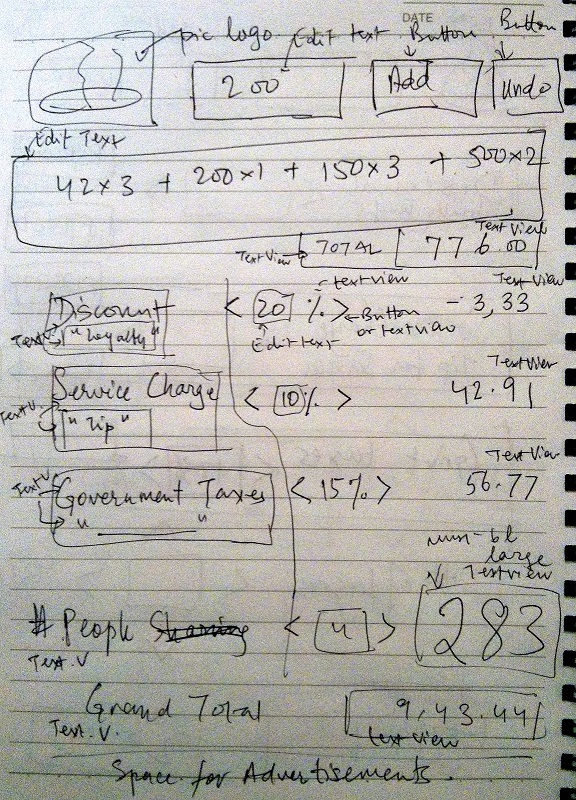 DATE
pic logo Edit text Button Button
200 Add Undo
Edit Text
42×3 + 200×1 + 150×3 + 500×2
Text View
TextView TOTAL 776.00
text view TextView
Discount < 20 % > - 3,33
Button or textview
Text V "Loyalty" Edit text
TextView
Service Charge < 10 % > 42.91
Text V. "Tip"
TextView
Text V Government Taxes < 15% > 56.77
" "
must be large
Textview
# People < 4 > 283
Text.V
Grand Total 9,43.44
Text.V. text view
Space for Advertisements.